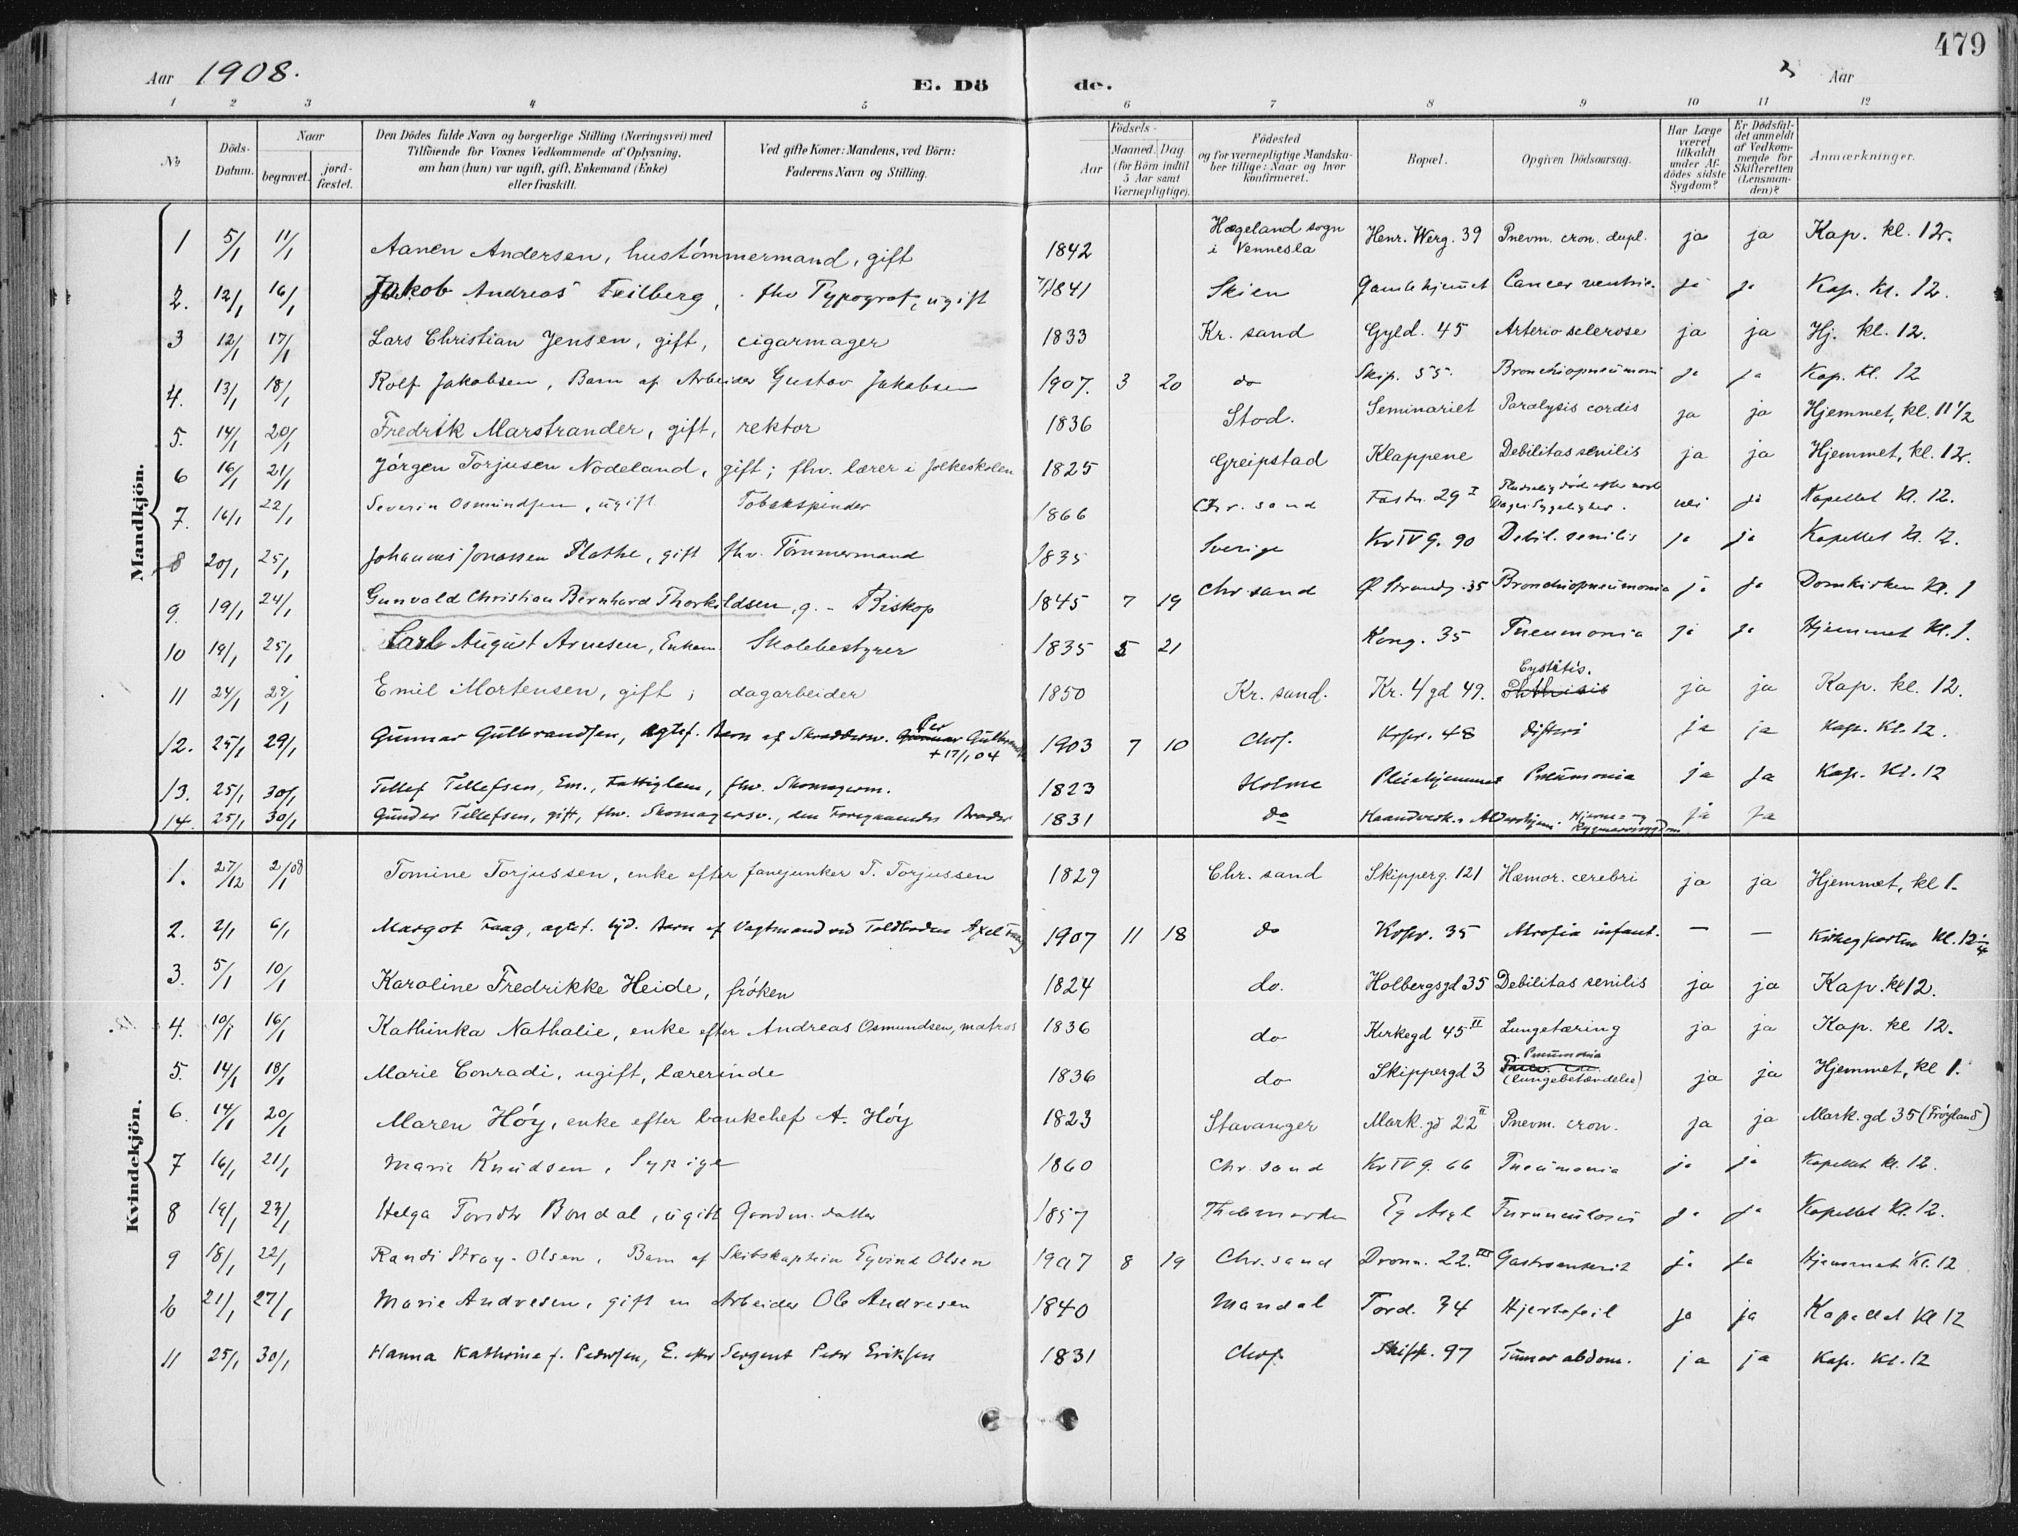 479
Aar 1908. E. Döde. Aar
1 2 3 4 5 6 7 8 9 10 11 12
No
Döds-Datum.
Naar
begravet.
jordfæstet.
Den Dödes fulde Navn og borgerlige Stilling (Næringsvei) med Tilföiende for Voxnes Vedkommende af Oplysning, om han (hun) var ugift, gift, Enkemand (Enke) eller fraskilt.
Ved gifte Koner: Mandens, ved Börn: Faderens Navn og Stilling.
Födsels-
Aar
Maaned. Dag.
(for Börn indtil 5 Aar samt Værnepligtige).
Födested og for værnepligtige Mandskaber tillige: Naar og hvor konfirmeret.
Bopæl.
Opgiven Dödsaarsag.
Har Læge været tilkaldt under Afdödes sidste Sygdom?
Er Dödsfaldet anmeldt af Vedkommende for Skifteretten (Lensmanden)?
Anmærkninger.
Mandkjön.
1 5/1 11/1 Aanen Andersen, hustømmermand, gift 1842 Hægeland sogn i Vennesla Henr. Werg. 39 Pnevm. cron. dupl. ja ja Kap. kl. 12.
2. 12/1 16/1 Jakob Andreas Feilberg, fhv Typograf, ugift 1841 Skien Gamlehjemet Cancer ventric. ja ja Kap. Kl. 12.
3 12/1 17/1 Lars Christian Jensen, gift, cigarmager 1833 Kr. sand Gyld. 45 Arterio sclerose ja ja Hj. kl. 12.
4. 13/1 18/1 Rolf Jakobsen, Barn af Arbeider Gustav Jakobsen 1907. 3 20 do Skip. 55. Bronchiopneumoni ja ja Kap. Kl. 12
5. 14/1 20/1 Fredrik Marstrander, gift, rektor 1836 Stod. Seminariet Paralysis cordis ja ja Hjemmet, kl. 11 1/2
6 16/1 21/1 Jørgen Torjusen Nodeland, gift; fhv. lærer i folkeskolen 1825 Greipstad Klappene Debilitas senilis ja ja Hjemmet, kl. 12.
7. 16/1 22/1 Severin Osmundsen, ugift Tobakspinder 1866 Chr. sand Fæstn. 29 I Pludselig død efter nogle Dages Sygelighed. nei ja Kapellet Kl. 12.
8 20/1 25/1 Johannes Jonassen Plathe, gift fhv. Tømmermand 1835 Sverige Kr IV g. 90 Debil. senilis ja ja Kapellet Kl. 12.
9. 19/1 24/1 Gunvald Christian Bernhard Thorkildsen, g. - Biskop 1845 7 19 Chr sand Ø. Strandg. 35 Bronchiopneumonia ja ja Domkirken Kl. 1
10 19/1 25/1 Carl August Arnesen, Enkem. Skolebestyrer 1835 5 21 Kong. 35 Pneumonia ja ja Hjemmet Kl. 1.
11 24/1 29/1 Emil Mortensen, gift; dagarbeider 1850 Kr. sand. Kr. 4 gd 49. Cystitis. ja ja Kap. kl. 12.
12. 25/1 29/1 Gunnar Gulbrandsen, ægtef. Barn af Skræddersv. Per Gulbrandsen + 17/1 04 1903 7 10 Chrs. Krpr. 48 Difteri ja ja Kap. Kl. 12.
13. 25/1 30/1 Tellef Tellefsen, Em., Fattiglem, fhv. Skomagerm. 1823 Holme Pleiehjemmet Pneumonia ja ja Kap. Kl. 12
14. 25/1 30/1 Gunder Tellefsen, gift, fhv. Skomagersv., den Foregaaendes Broder 1831 do Haandverk.s Aldershjem. Hjerne- og Rygmarvsygdom ja ja
Kvindekjön.
1. 27/12 2/1 08 Tomine Torjussen, enke efter fanejunker T. Torjussen 1829 Chr. sand Skipperg. 121 Hæmor. cerebri ja ja Hjemmet, kl 1.
2. 2/1 6/1 Margot Faag, ægtef. Barn af Vagtmand ved Toldboden Axel Faag 1907 11 18 do Krpr. 35 Atrofia infant. — — Kirkegporten Kl. 12 1/4
3. 5/1 10/1 Karoline Fredrikke Heide, frøken 1824 do. Holbergsgd 35 Debilitas senilis ja ja Kap. kl 12.
4. 10/1 16/1 Kathinka Nathalie, enke efter Andreas Osmundsen, matros 1836 do Kirkegd 45 II Lungetæring ja ja Kap. kl 12.
5. 14/1 18/1 Marie Conradi, ugift, lærerinde 1836 do Skippergd 3 Pneumonia (lungebetændelse) ja ja Hjemmet, kl 1.
6. 14/1 20/1 Maren Høy, enke efter bankchef A. Høy 1823 Stavanger Mark. gd 22 II Pnevm. cron. ja ja Mark. gd 35 (Frøyland)
7 16/1 21/1 Marie Knudsen, Sypige 1860 Chr. sand Kr IV g. 66 Pneumonia ja ja Kapellet kl. 12.
8 19/1 23/1 Helga Tordtr Bondal, ugift Gaardm. datter 1857 Thelemarken Eg Asyl Furunculosis ja ja Kapellet Kl. 12.
9 18/1 22/1 Randi Stray-Olsen, Barn af Skibskaptein Eyvind Olsen 1907 8 19 Chr. sand Dronn. 22. III Gastroenterit ja ja Hjemmet Kl. 12
10 21/1 27/1 Marie Andresen, gift m Arbeider Ole Andresen 1840 Mandal Tord. 34 Hjertefeil ja ja Kapellet Kl 12
11 25/1 30/1 Hanna Kathrine f. Pedersen, E. efter Sergent Peder Eriksen 1831 Chrs. Skipp. 97 Tumor abdom. ja ja Kap. Kl. 12